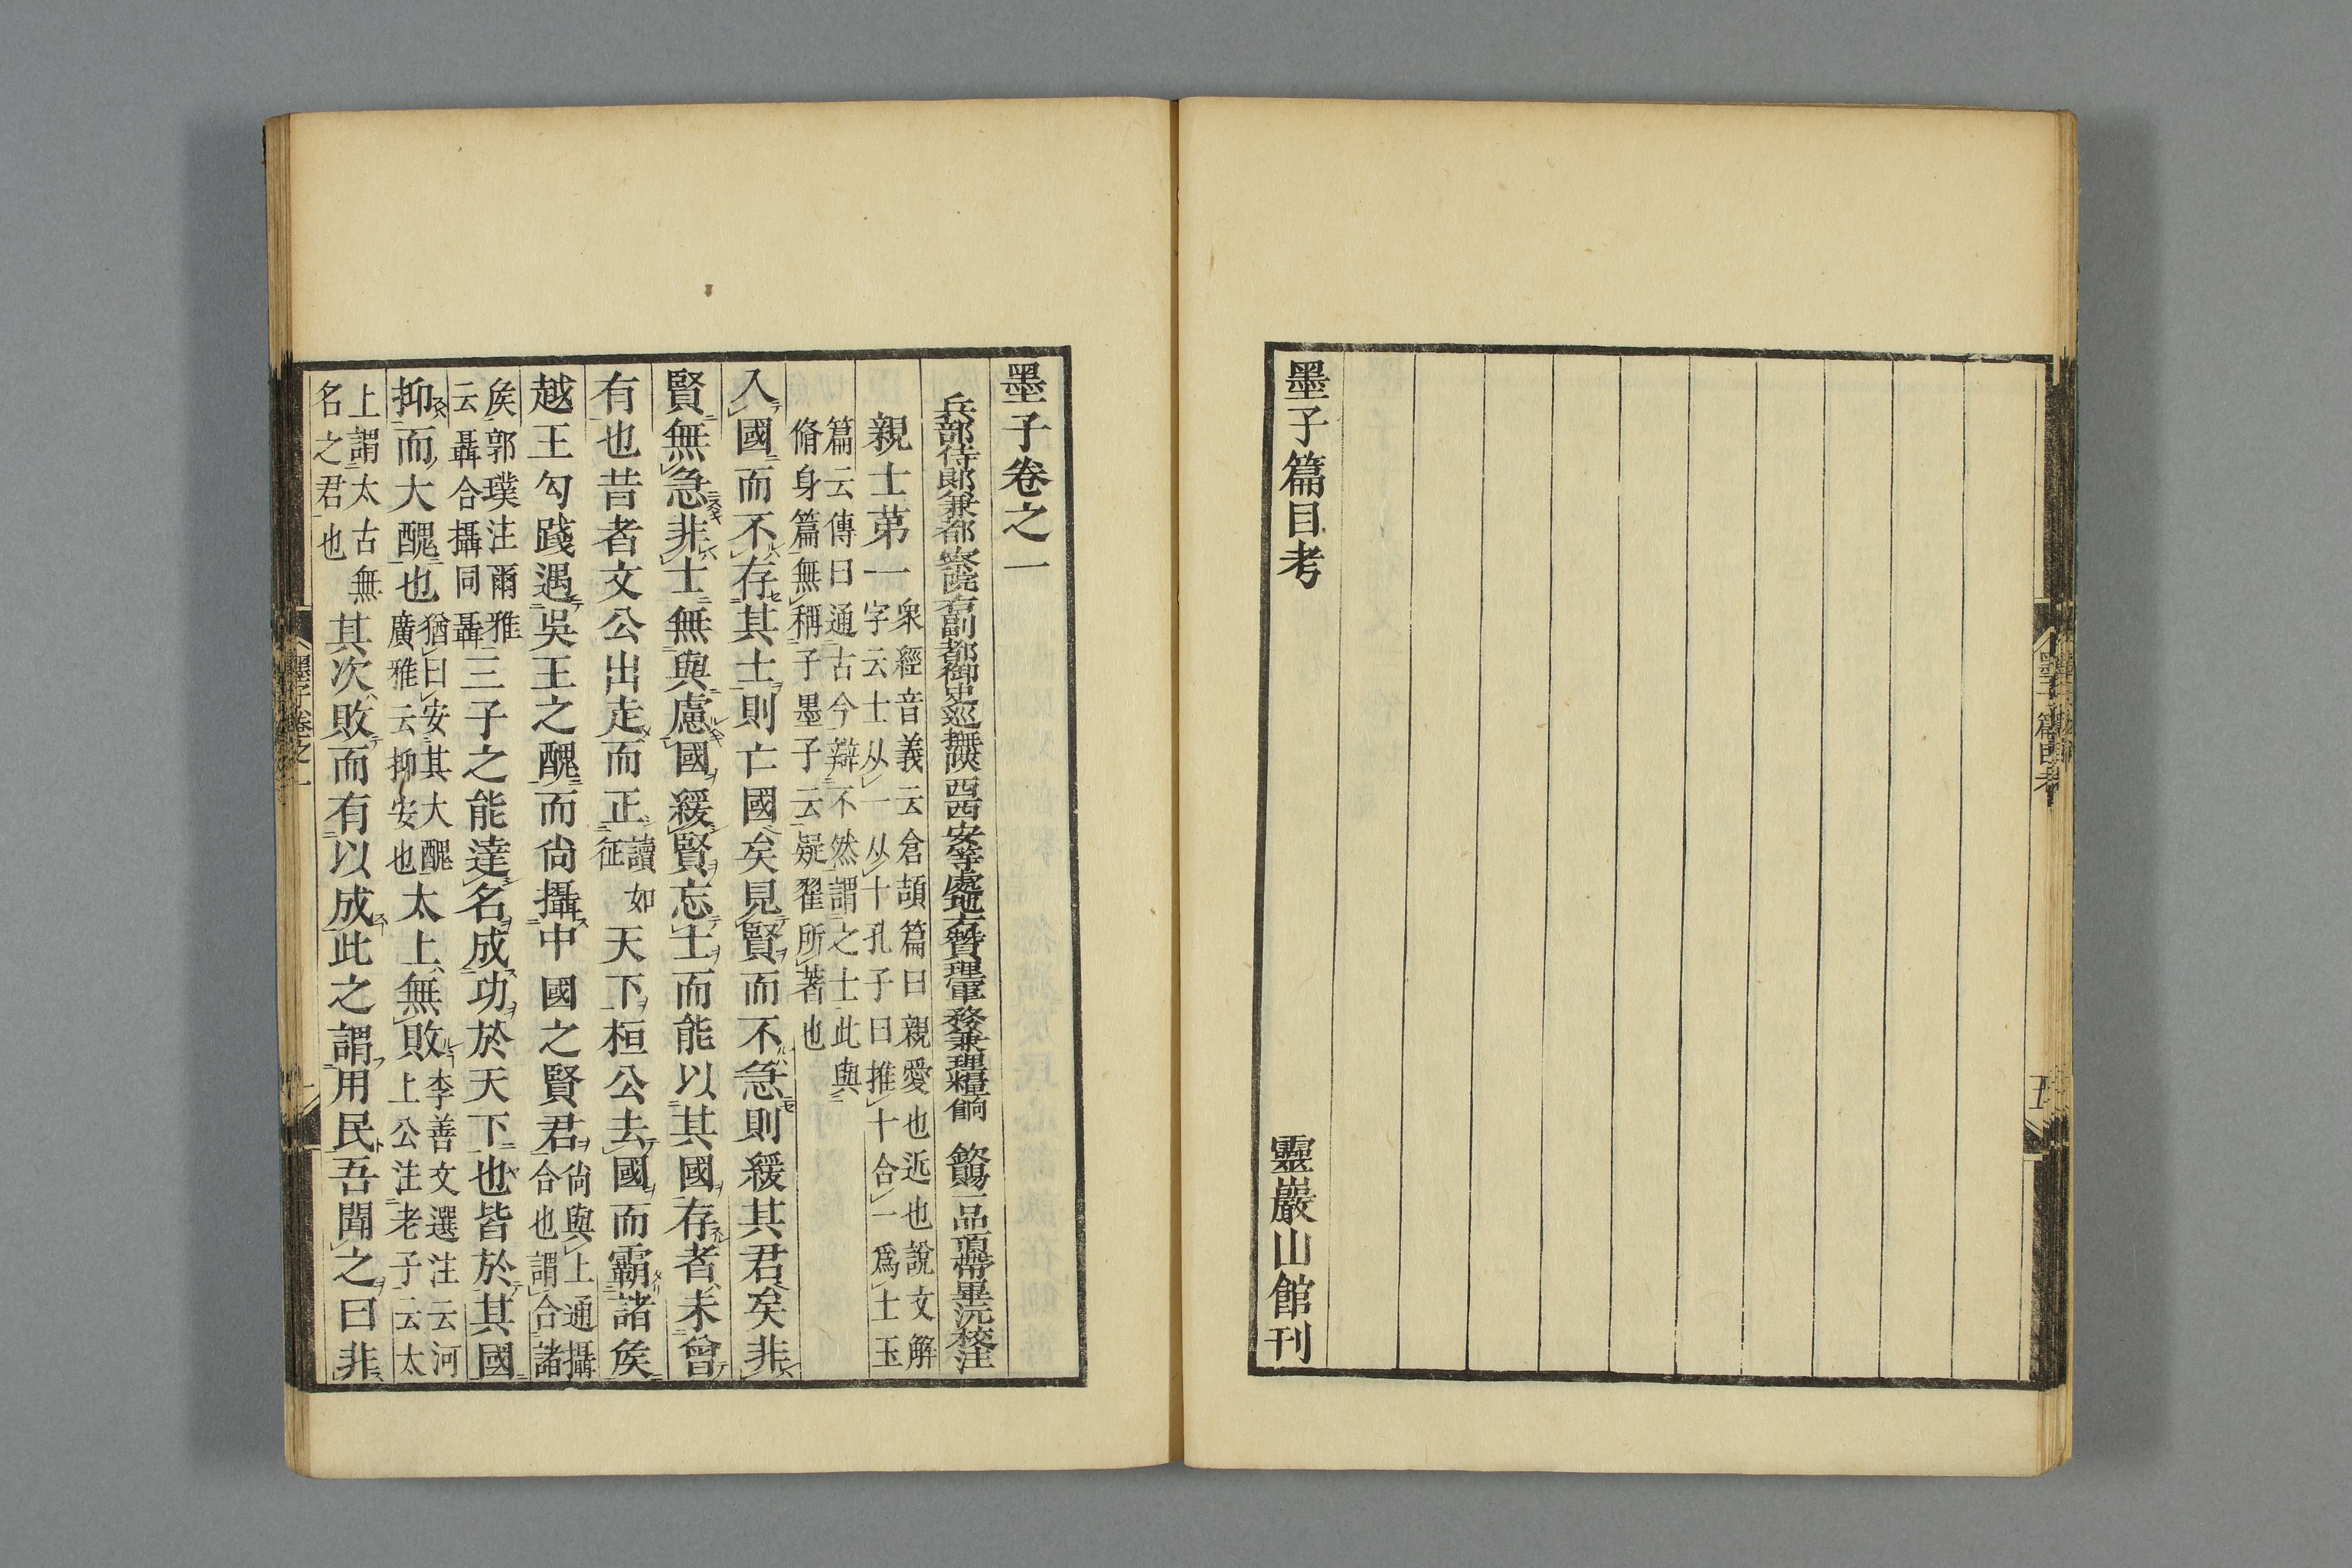 墨子篇目考　　　靈巖山館刊
墨子篇目考
墨子卷之一
兵部侍郎兼都察院右副都御史巡撫陝西西安等處地方贊理軍務兼理糧餉　欽賜一品頂帶畢沅校注
親士苐一
衆經音義云倉頡篇曰親愛也近也說文解
字云士从一从十孔子曰推十合一爲士玉
篇云傳曰通古今辯不然謂之士此與
脩身篇無稱子墨子云疑翟所著也
入國而不存其士則亡國矣見賢而不急則緩其君矣非
賢無急非士無與慮國緩賢忘士而能以其國存者未曾
有也昔者文公出走而正讀如征天下桓公去國而霸諸矦
越王勾踐遇吳王之醜而尙攝中國之賢君尙與上通攝合也謂合諸
矦郭璞注爾雅云聶合攝同聶三子之能達名成功於天下也皆於其國
抑而大醜也猶曰安其大醜廣雅云抑安也太上無敗李善文選注云河上公注老子云太
上謂太古無名之君也其次敗而有以成此之謂用民吾聞之曰非
墨子卷之一　一